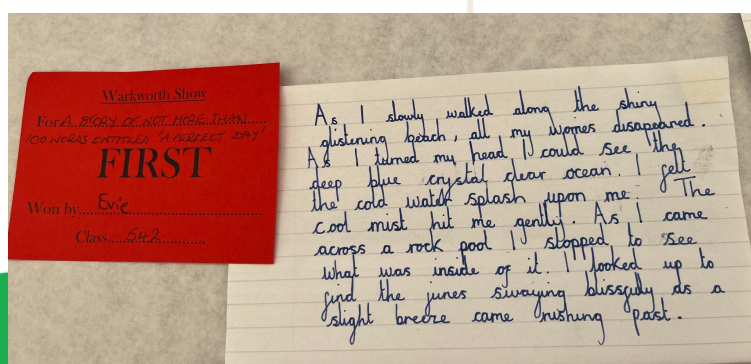 Warkworth Show
For A STORY OF NOT MORE THAN
100 WORDS ENTITLED 'A PERFECT DAY'
FIRST
Won by Evie
Class 542
As I slowly walked along the shiny
glistening beach, all my worries disapeared.
As I turned my head I could see the
deep blue crystal clear ocean. I felt
the cold water splash upon me. The
cool mist hit me gently. As I came
across a rock pool I stopped to see
what was inside of it. I looked up to
find the junes swaying blissfully as a
slight breeze came rushing past.